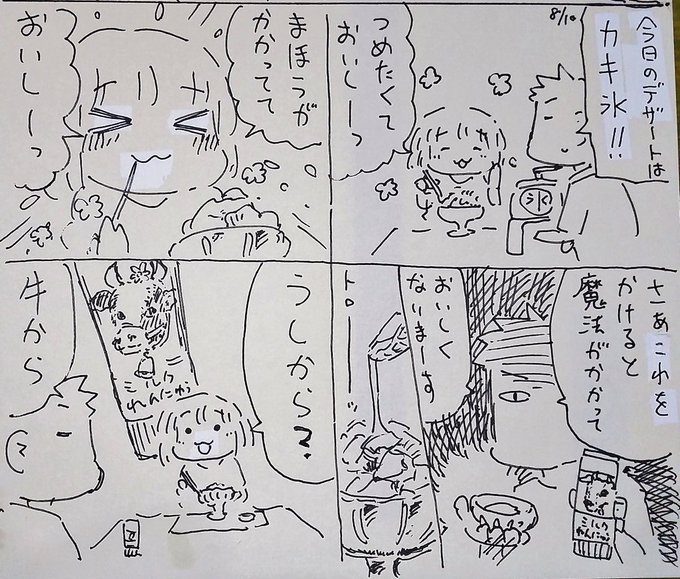 8/10
今日のデザートは
カキ氷!!
氷
つめたくて
おいしーっ
さぁこれを
かけると
魔法がかかって
おいしく
なりまーす
ミルク
れんにゅう
トローーッ
まほうが
かかってて
おいしーっ
うしから?
ミルク
れんにゅう
牛から